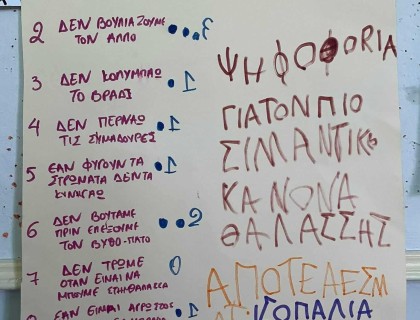 2 ΔΕΝ ΒΟΥΛΙΑΖΟΥΜΕ
ΤΟΝ ΑΛΛΟ
3
3 ΔΕΝ ΚΟΛΥΜΠΑΩ
ΤΟ ΒΡΑΔΙ
1
4 ΔΕΝ ΠΕΡΝΑΩ
ΤΙΣ ΣΥΜΑΔΟΥΡΕΣ
1
5 ΕΑΝ ΦΥΓΟΥΝ ΤΑ
ΣΤΡΩΜΑΤΑ ΔΕΝ ΤΑ
ΚΥΝΗΓΑΩ
1
6 ΔΕΝ ΒΟΥΤΑΜΕ
ΠΡΙΝ ΕΛΕΞΟΥΜΕ
ΤΟΝ ΒΥΘΟ-ΠΑΤΟ
2
7 ΔΕΝ ΤΡΩΜΕ
ΟΤΑΝ ΕΙΝΑΙ ΝΑ
ΜΠΟΥΜΕ ΣΤΗ ΘΑΛΑΣΣΑ
0
ΕΑΝ ΕΙΜΑΙ ΑΡΩΣΤΟΣ
1
ΨΗΦΟΦΟRΙΑ
ΓΙΑ ΤΟΝ ΠΙΟ
ΣΙΜΑΝΤΙΚΟ
ΚΑΝΟΝΑ
ΘΑΛΑΣΣΗΣ
ΑΠΟΤΕΛΕΣΜ
ΚΟΠΑΛΙΑ